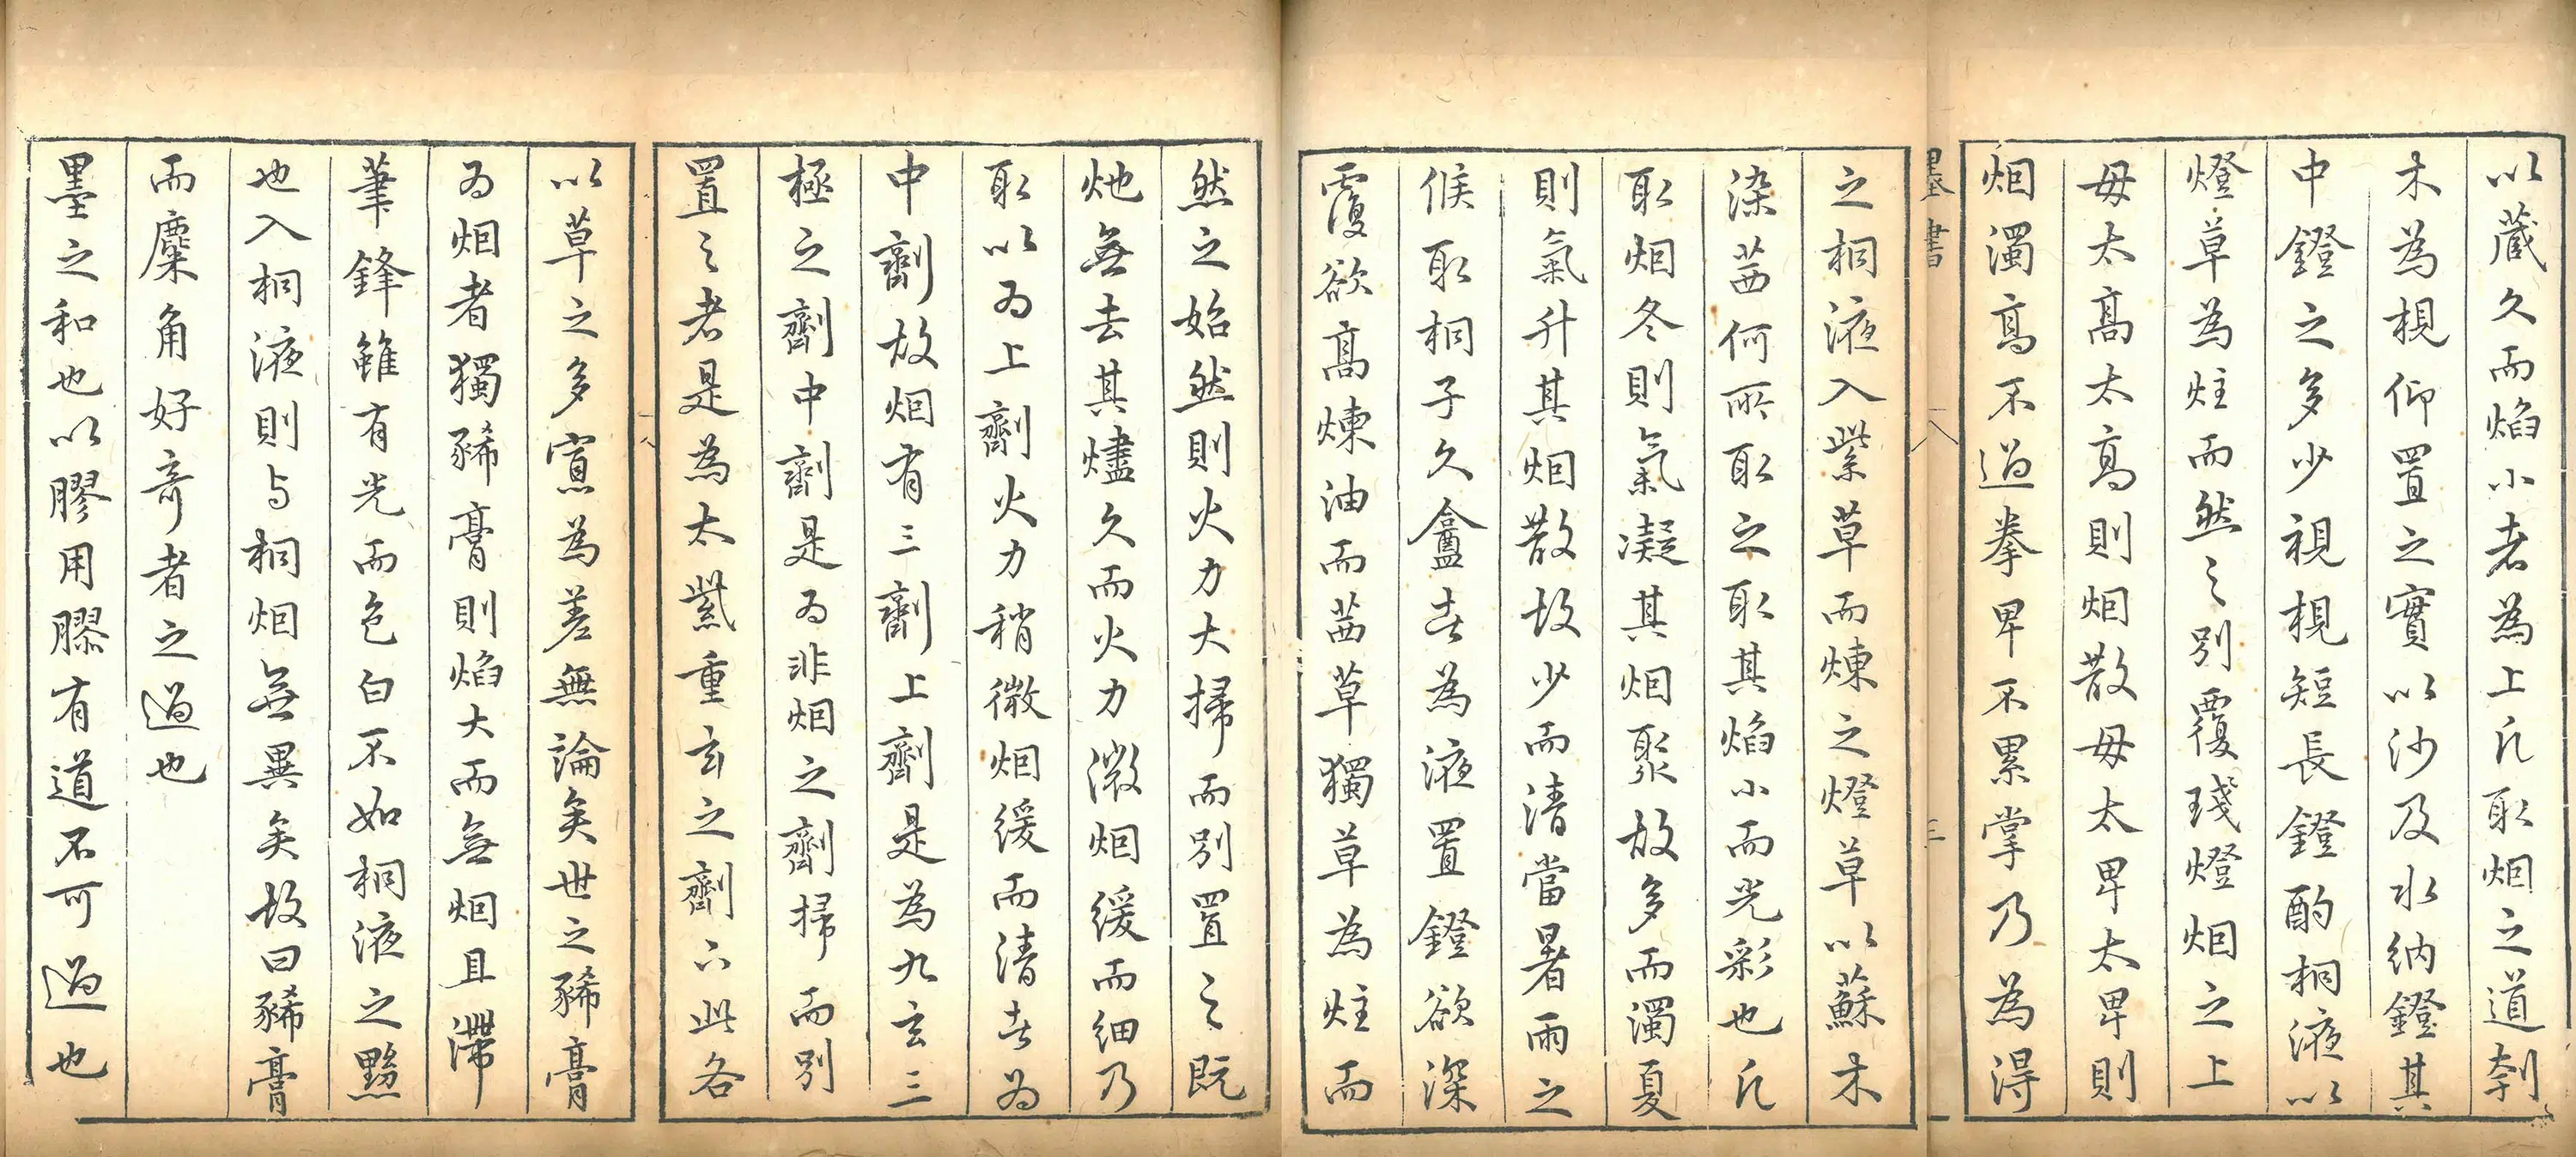 以蔵久而焰小者為上凡取烟之道刳
木為梘仰置之實以沙及水納鐙其
中鐙之多少視梘短長鐙酌桐液以
燈草為炷而然之別覆瓷燈烟之上
毋太高太高則烟散毋太卑太卑則
烟濁高不過拳卑不累掌乃為得
墨書
三
之桐液入紫草而煉之燈草以蘇木
染茜何所取之取其焰小而光彩也凡
取烟冬則氣凝其烟聚故多而濁夏
則氣升其烟散故少而清當暑雨之
候取桐子久盦者為液置鐙欲深
覆欲高煉油而茜草獨草為炷而
然之始然則火力大掃而別置之既
灺無去其燼久而火力微烟緩而細乃
取以為上劑火力稍微烟緩而清者為
中劑故烟有三劑上劑是為九玄三
極之劑中劑是為非烟之劑掃而別
置之者是為太紫重玄之劑亦此各
以草之多寡為差無論矣世之豨膏
為烟者獨豨膏則焰大而無烟且滯
筆鋒雖有光而色白不如桐液之黟
也入桐液則与桐烟無異矣故曰豨膏
而麋角好奇者之過也
墨之和也以膠用膠有道不可過也